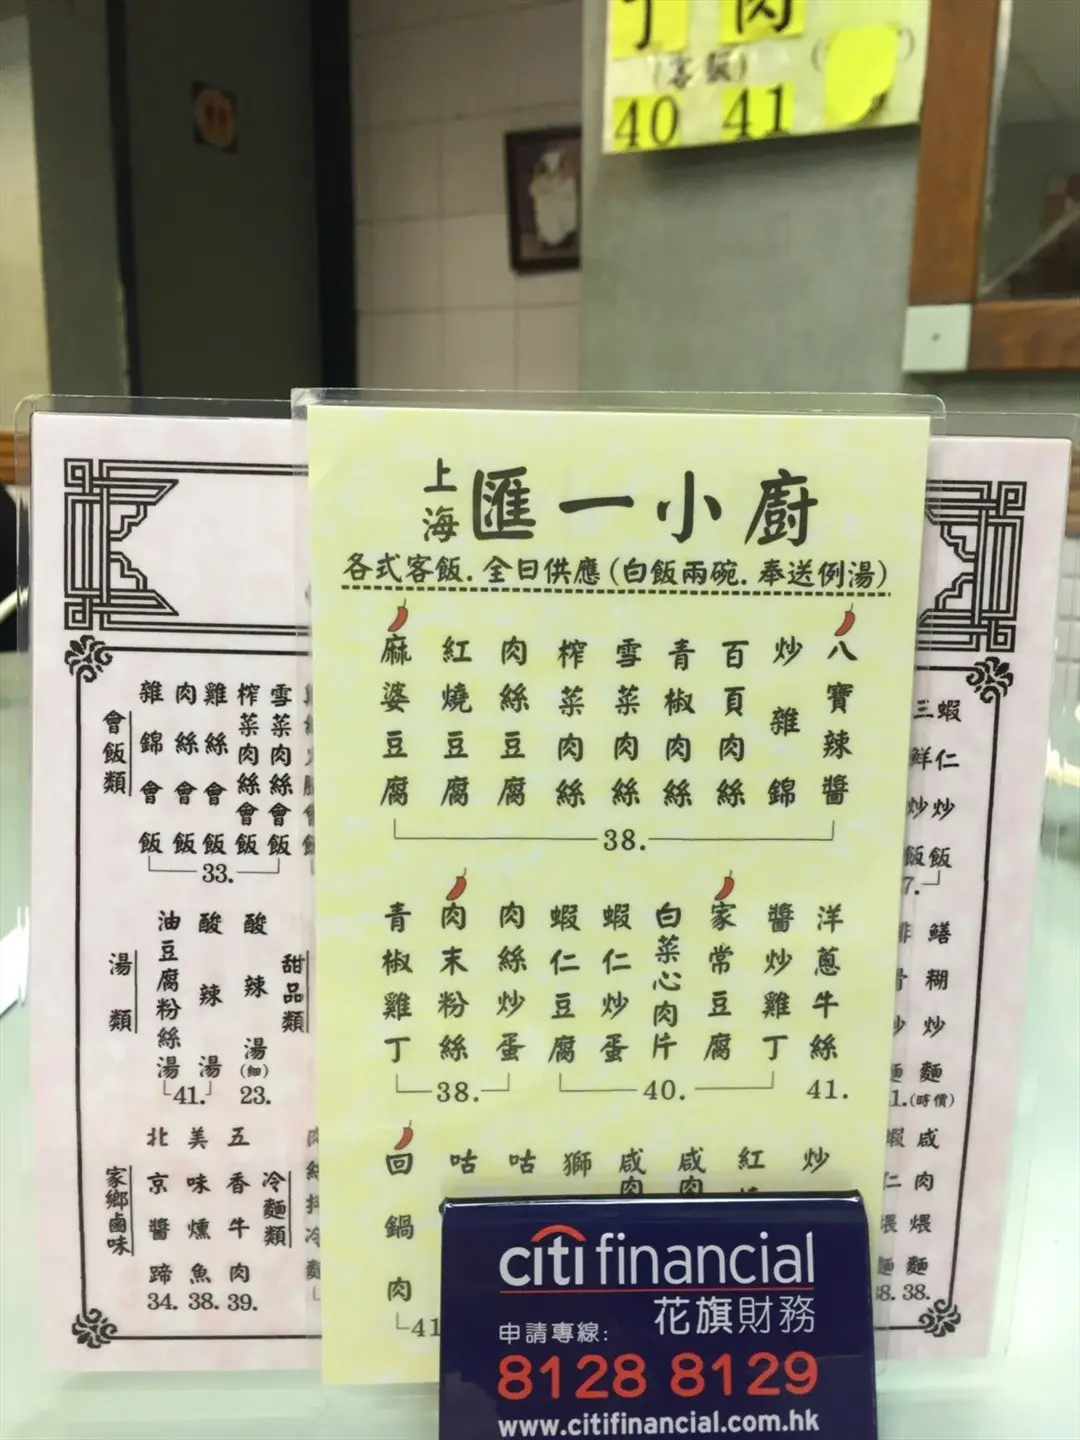 丁 肉
(客飯)
40 41
上海 匯一小廚
各式客飯.全日供應(白飯兩碗.奉送例湯)
麻婆豆腐
紅燒豆腐
肉絲豆腐
榨菜肉絲
雪菜肉絲
青椒肉絲
百頁肉絲
炒雜錦
八寶辣醬
38.
青椒雞丁
肉末粉絲
肉絲炒蛋
38.
蝦仁豆腐
蝦仁炒蛋
白菜心肉片
家常豆腐
醬炒雞丁
40.
洋蔥牛絲
41.
回鍋肉
41
咕
咕
獅
咸肉
咸肉
紅
炒
會飯類
雜錦會飯
肉絲會飯
雞絲會飯
榨菜肉絲會飯
雪菜肉絲會飯
33.
湯類
油豆腐粉絲湯
酸辣湯
41.
酸辣湯(細)
23.
甜品類
家鄉鹵味
北京醬蹄
34.
美味燻魚
38.
五香牛肉
39.
冷麵類
三鮮炒飯
蝦仁炒飯
7.
鱔糊炒麵
(時價)
咸肉煨麵
38.
citifinancial
花旗財務
申請專線:
8128 8129
www.citifinancial.com.hk